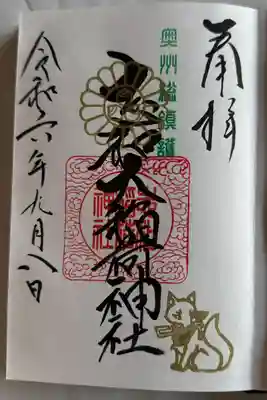 奉拝
奥州総鎮護
志和大稲荷神社
令和六年九月八日